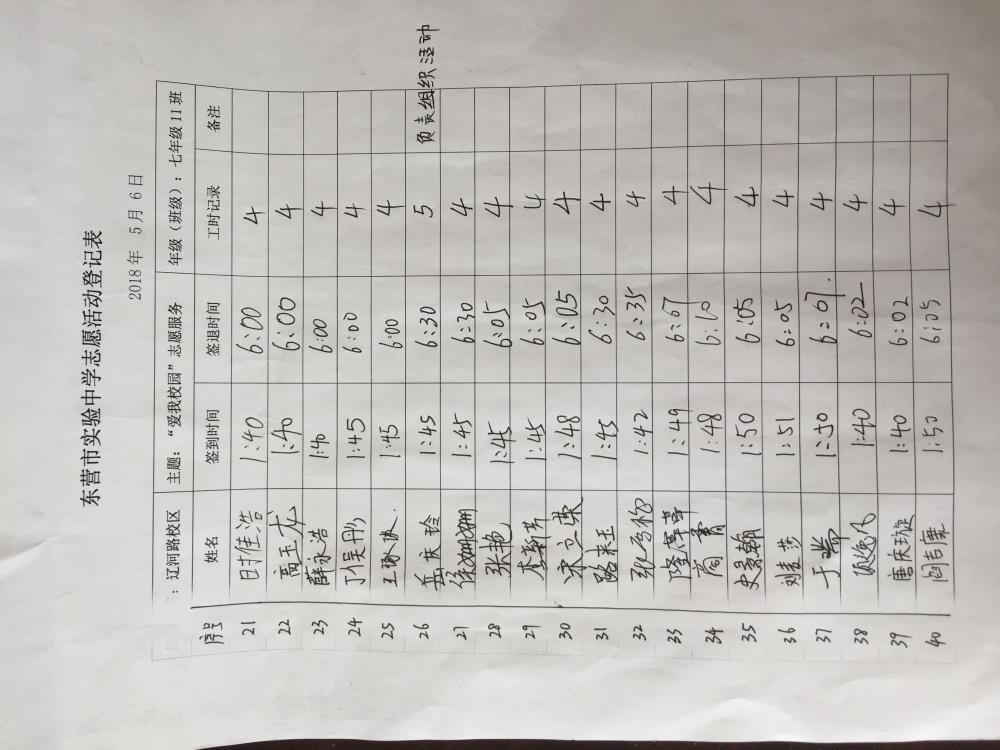 东营市实验中学志愿活动登记表
2018年 5月 6日
：辽河路校区 主题：“爱我校园”志愿服务 年级（班级）：七年级11班
序号 姓名 签到时间 签退时间 工时记录 备注
21 时佳浩 1:40 6:00 4
22 高玉龙 1:40 6:00 4
23 薛永浩 1:40 6:00 4
24 丁俣彤 1:45 6:00 4
25 王 1:45 6:00 4
26 岳庆玲 1:45 6:30 5 负责组织活动
27 徐姗姗 1:45 6:30 4
28 张艳 1:45 6:05 4
29 李新芳 1:45 6:05 4
30 宋立英 1:48 6:05 4
31 路来玉 1:45 6:30 4
32 1:42 6:35 4
33 隆 1:49 6:07 4
34 商霄 1:48 6:10 4
35 史景翰 1:50 6:05 4
36 刘素莎 1:51 6:05 4
37 于 1:50 6:07. 4
38 1:40 6:02 4
39 唐庆 1:40 6:02 4
40 闫吉廉 1:50 6:05 4